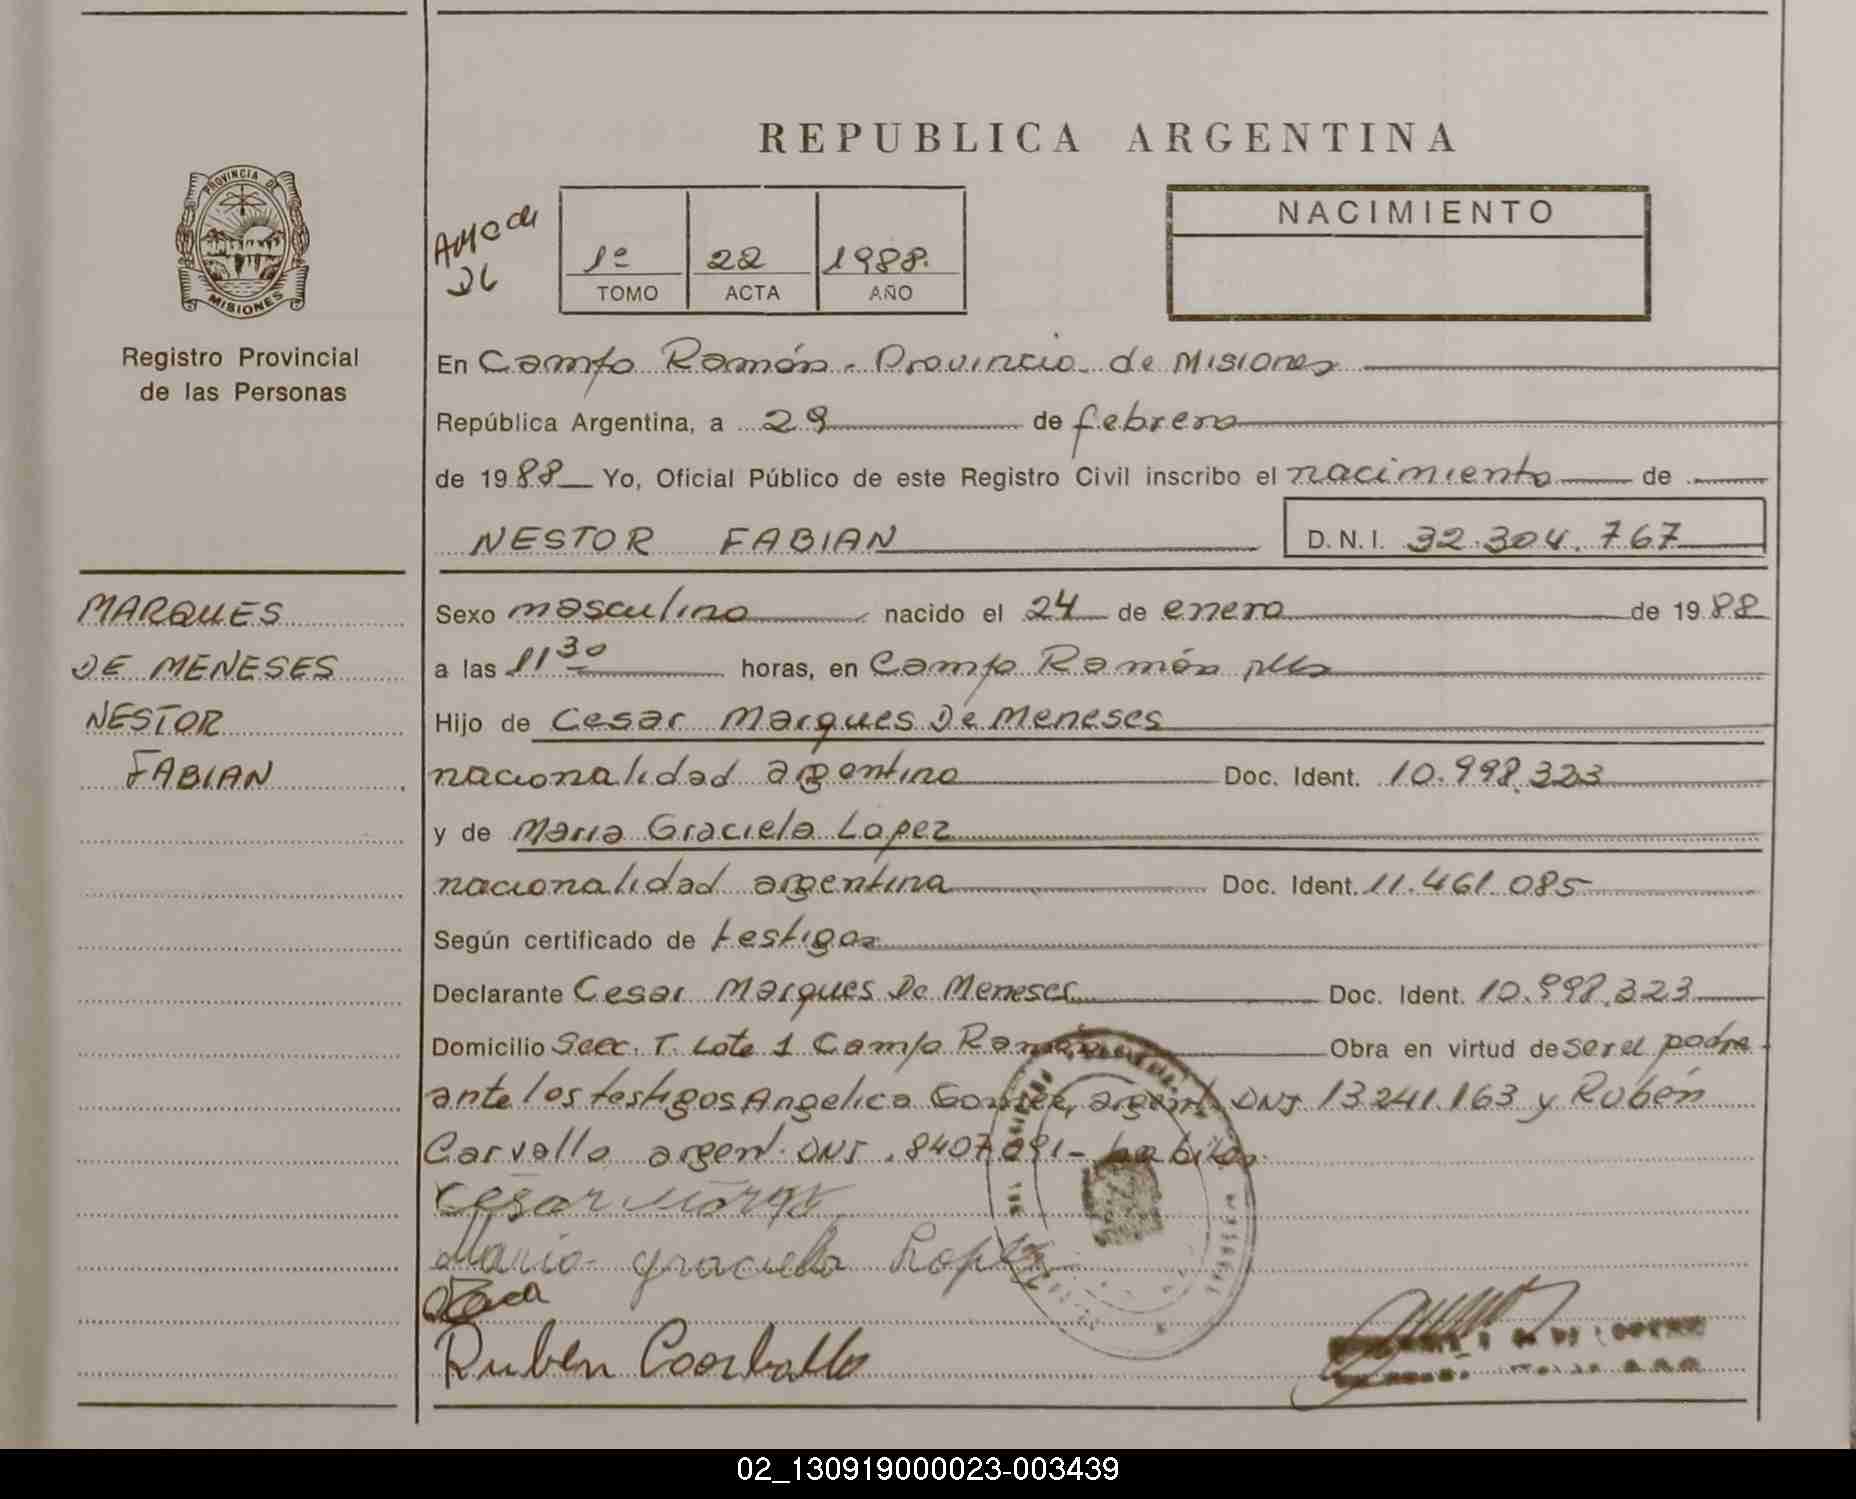 REPUBLICA ARGENTINA
PROVINCIA DE
MISIONES
Registro Provincial
de las Personas
1º 22 1988.
TOMO ACTA AÑO
NACIMIENTO
En Campo Ramón. Provincia de Misiones
República Argentina, a 29 de febrero
de 1988 Yo, Oficial Público de este Registro Civil inscribo el nacimiento de
NESTOR FABIAN D.N.I. 32.304.767
MARQUES
DE MENESES
NESTOR
FABIAN
Sexo masculino nacido el 24 de enero de 1988
a las 11 30 horas, en Campo Ramón
Hijo de Cesar Marques De Meneses
nacionalidad argentino Doc. Ident. 10.998.323
y de Maria Graciela Lopez
nacionalidad argentina Doc. Ident. 11.461.085
Según certificado de testigos
Declarante Cesar Marques De Meneses Doc. Ident. 10.998.323
Domicilio Secc. T. Lote 1 Campo Ramón Obra en virtud de ser el padre
ante los testigos Angelica argent. DNI 13241.163 y Rubén
Carvallo argent. DNI. 8407.091- habiles
Cesar
Maria graciela Lopez
Ruben
02_130919000023-003439